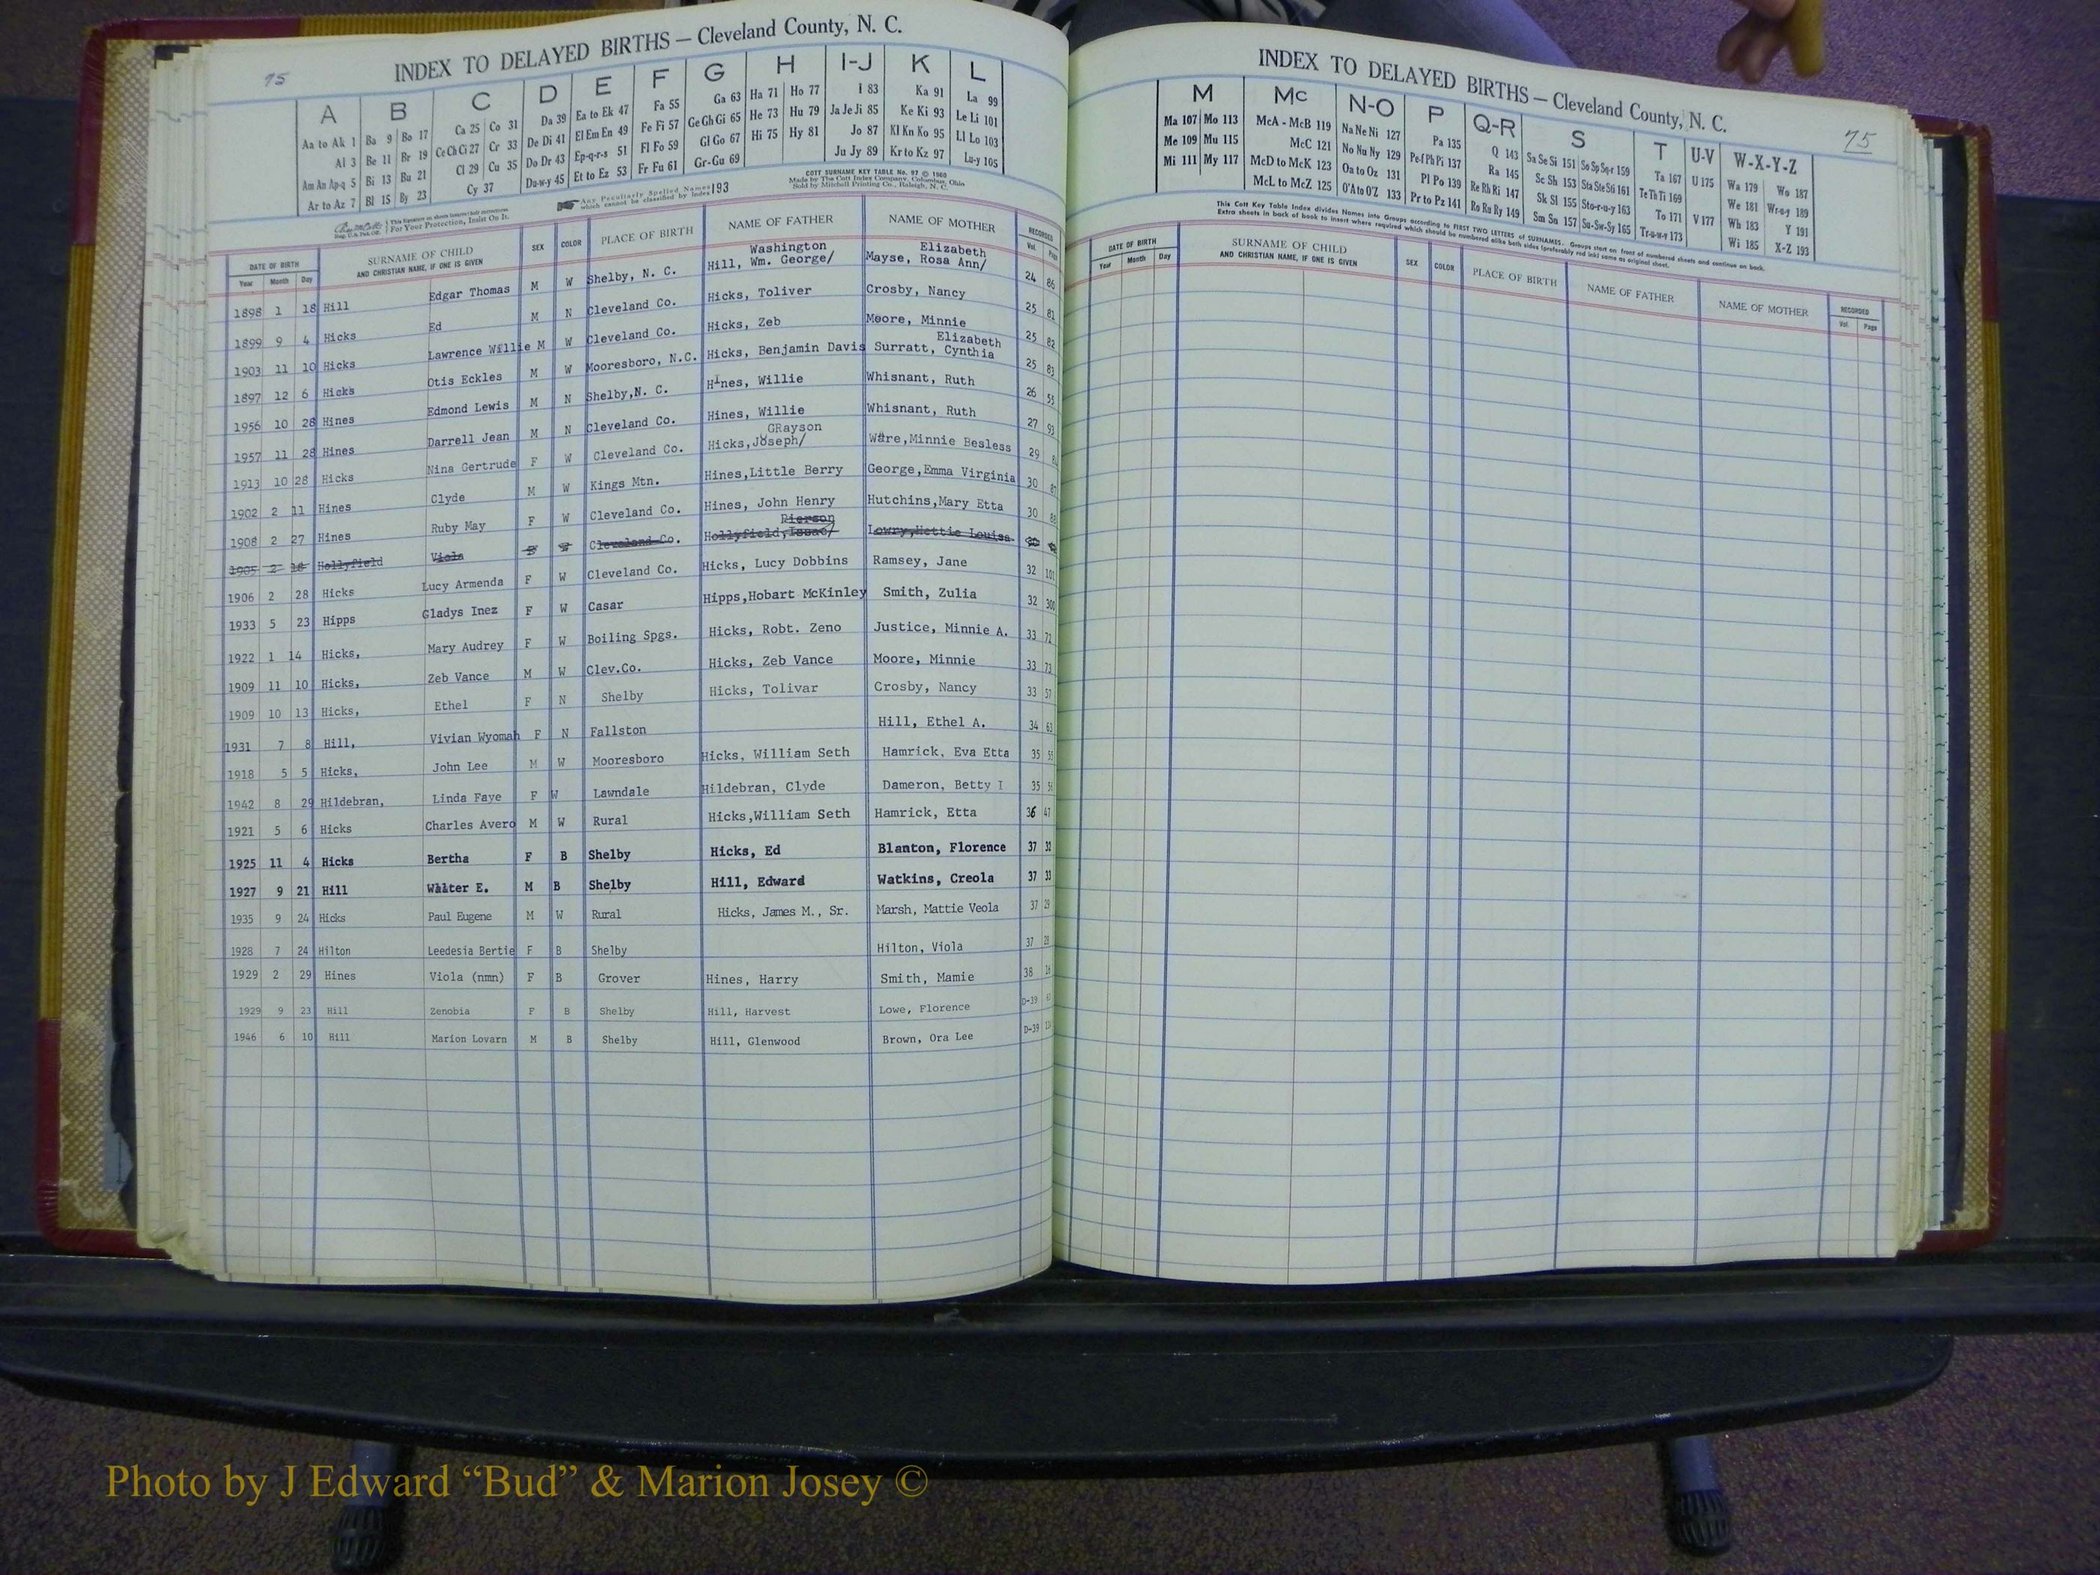 75
INDEX TO DELAYED BIRTHS — Cleveland County, N. C.
A B C D E F G H I-J K L
Aa to Ak 1 Ba 9 Bo 17 Ca 25 Co 31 Da 39 Ea to Ek 47 Fa 55 Ga 63 Ha 71 Ho 77 I 83 Ka 91 La 99
Al 3 Be 11 Br 19 Ce Ch Ci 27 Cr 33 De Di 41 El Em En 49 Fe Fi 57 Ge Gh Gi 65 He 73 Hu 79 Ja Je Ji 85 Ke Ki 93 Le Li 101
Am An Ap-q 5 Bi 13 Bu 21 Cl 29 Cu 35 Do Dr 43 Ep-q-r-s 51 Fl Fo 59 Gl Go 67 Hi 75 Hy 81 Jo 87 Kl Kn Ko 95 Ll Lo 103
Ar to Az 7 Bl 15 By 23 Cy 37 Du-w-y 45 Et to Ez 53 Fr Fu 61 Gr-Gu 69 Ju Jy 89 Kr to Kz 97 Lu-y 105
This Signature on sheets insures correctness
For Your Protection, Insist On It.
Any Peculiarly Spelled Names which cannot be classified by index 193
COTT SURNAME KEY TABLE No. 97 © 1960
Made by The Cott Index Company, Columbus, Ohio
Sold by Mitchell Printing Co., Raleigh, N. C.
DATE OF BIRTH Year Month Day SURNAME OF CHILD AND CHRISTIAN NAME, IF ONE IS GIVEN SEX COLOR PLACE OF BIRTH NAME OF FATHER NAME OF MOTHER RECORDED Vol. Page
Washington Elizabeth
1898 1 18 Hill Edgar Thomas M W Shelby, N. C. Hill, Wm. George/ Mayse, Rosa Ann/ 24 86
1899 9 4 Hicks Ed M N Cleveland Co. Hicks, Toliver Crosby, Nancy 25 81
1903 11 10 Hicks Lawrence Willie M W Cleveland Co. Hicks, Zeb Moore, Minnie 25 82
Elizabeth
1897 12 6 Hicks Otis Eckles M W Mooresboro, N.C. Hicks, Benjamin Davis Surratt, Cynthia 25 83
1956 10 28 Hines Edmond Lewis M N Shelby,N. C. Hines, Willie Whisnant, Ruth 26 55
1957 11 28 Hines Darrell Jean M N Cleveland Co. Hines, Willie Whisnant, Ruth 27 93
GRayson
1913 10 28 Hicks Nina Gertrude F W Cleveland Co. Hicks,Joseph/ Ware,Minnie Besless 29
1902 2 11 Hines Clyde M W Kings Mtn. Hines,Little Berry George,Emma Virginia 30 87
1908 2 27 Hines Ruby May F W Cleveland Co. Hines, John Henry Hutchins,Mary Etta 30 88
Pierson
1905 2 18 Hollyfield Viola F Cleveland Co. Hollyfield,Isaac/ Lowry,Hettie Louisa
1906 2 28 Hicks Lucy Armenda F W Cleveland Co. Hicks, Lucy Dobbins Ramsey, Jane 32 101
1933 5 23 Hipps Gladys Inez F W Casar Hipps,Hobart McKinley Smith, Zulia 32 300
1922 1 14 Hicks, Mary Audrey F W Boiling Spgs. Hicks, Robt. Zeno Justice, Minnie A. 33 72
1909 11 10 Hicks, Zeb Vance M W Clev.Co. Hicks, Zeb Vance Moore, Minnie 33 73
1909 10 13 Hicks, Ethel F N Shelby Hicks, Tolivar Crosby, Nancy 33 57
1931 7 8 Hill, Vivian Wyomah F N Fallston Hill, Ethel A. 34 63
1918 5 5 Hicks, John Lee M W Mooresboro Hicks, William Seth Hamrick, Eva Etta 35
1942 8 29 Hildebran, Linda Faye F W Lawndale Hildebran, Clyde Dameron, Betty I 35
1921 5 6 Hicks Charles Avero M W Rural Hicks,William Seth Hamrick, Etta 36 47
1925 11 4 Hicks Bertha F B Shelby Hicks, Ed Blanton, Florence 37
1927 9 21 Hill Walter E. M B Shelby Hill, Edward Watkins, Creola 37 33
1935 9 24 Hicks Paul Eugene M W Rural Hicks, James M., Sr. Marsh, Mattie Veola 37 29
1928 7 24 Hilton Leedesia Bertie F B Shelby Hilton, Viola 37 28
1929 2 29 Hines Viola (nmn) F B Grover Hines, Harry Smith, Mamie 38
1929 9 23 Hill Zenobia F B Shelby Hill, Harvest Lowe, Florence D-39
1946 6 10 Hill Marion Lovarn M B Shelby Hill, Glenwood Brown, Ora Lee D-39
INDEX TO DELAYED BIRTHS — Cleveland County, N. C.
75
M Mc N-O P Q-R S T U-V W-X-Y-Z
Ma 107 Mo 113 McA - McB 119 Na Ne Ni 127 Pa 135 Q 143 Sa Se Si 151 So Sp Sq-r 159 Ta 167 U 175 Wa 179 Wo 187
Me 109 Mu 115 McC 121 No Nu Ny 129 Pe-f Ph Pi 137 Ra 145 Sc Sh 153 Sta Ste Sti 161 Te Th Ti 169 V 177 We 181 Wr-u-y 189
Mi 111 My 117 McD to McK 123 Oa to Oz 131 Pl Po 139 Re Rh Ri 147 Sk Sl 155 Sto-r-u-y 163 To 171 Wh 183 Y 191
McL to McZ 125 O'A to O'Z 133 Pr to Pz 141 Ro Ru Ry 149 Sm Sn 157 Su-Sw-Sy 165 Tr-u-w-y 173 Wi 185 X-Z 193
This Cott Key Table Index divides Names into Groups according to FIRST TWO LETTERS of SURNAMES. Groups start on front of numbered sheets and continue on back.
Extra sheets in back of book to insert where required which should be numbered alike both sides (preferably red ink) same as original sheet.
DATE OF BIRTH Year Month Day SURNAME OF CHILD AND CHRISTIAN NAME, IF ONE IS GIVEN SEX COLOR PLACE OF BIRTH NAME OF FATHER NAME OF MOTHER RECORDED Vol. Page
Photo by J Edward “Bud” & Marion Josey ©